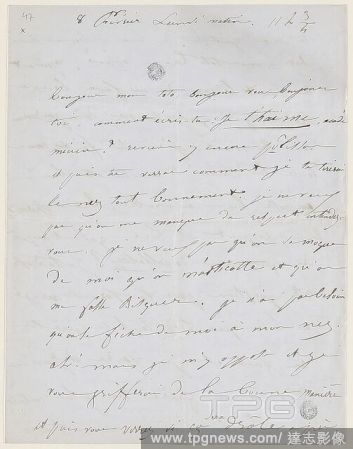 47
x
8 février Lundi matin. 11 h 3/4
Bonjour mon toto bonjour
toi. comment écris-tu je t'haime,
mieux? reviens y encore
et puis tu verras comment je te tirerai
le nez tout bonnement. je ne veux
pas qu'on me manque de respect entendez-
vous. je ne veux pas qu'on se moque
de moi qu'on m'asticotte et qu'on
me fasse bisquer. je n'ai pas besoin
qu'on se fiche de moi à mon nez.
ah! mais je m'y oppose et je
vous grifferai de la bonne manière
et puis vous verrez si
TPG
www.tpgnews.com/達志影像